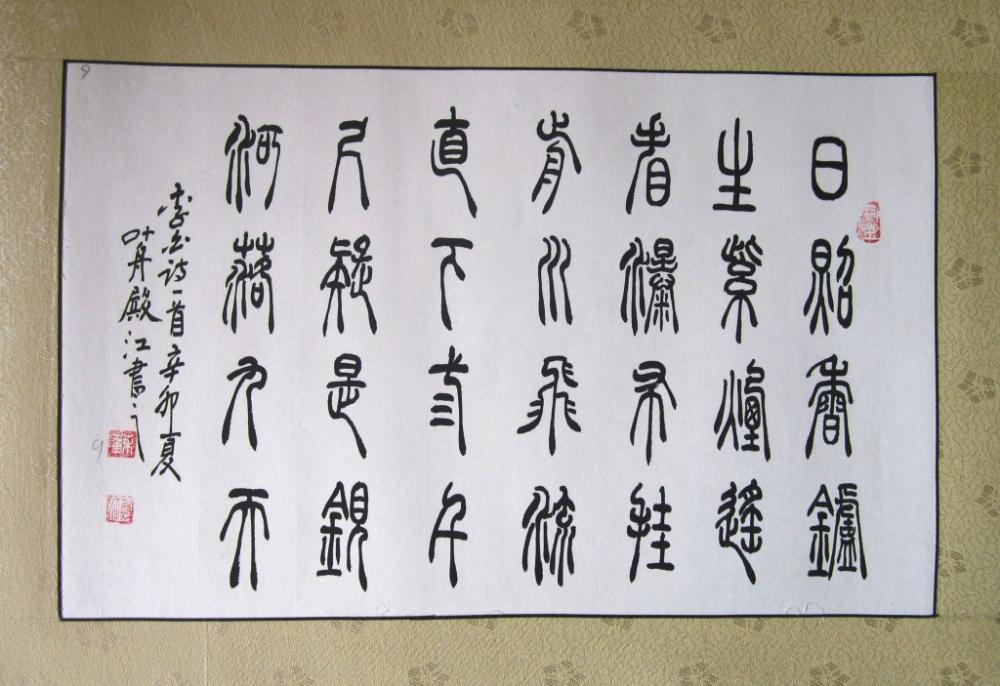 日照香鑪
生紫煙遙
看瀑布挂
前川飛流
直下三千
尺疑是銀
河落九天
李白詩一首辛卯夏
叶舟殿江書之
9
9